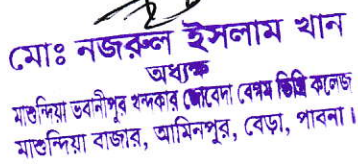 মোঃ নজরুল ইসলাম খান
অধ্যক্ষ
মাশুন্দিয়া ভবানীপুর খন্দকার জোবেদা বেগম ডিগ্রি কলেজ
মাশুন্দিয়া বাজার, আমিনপুর, বেড়া, পাবনা।